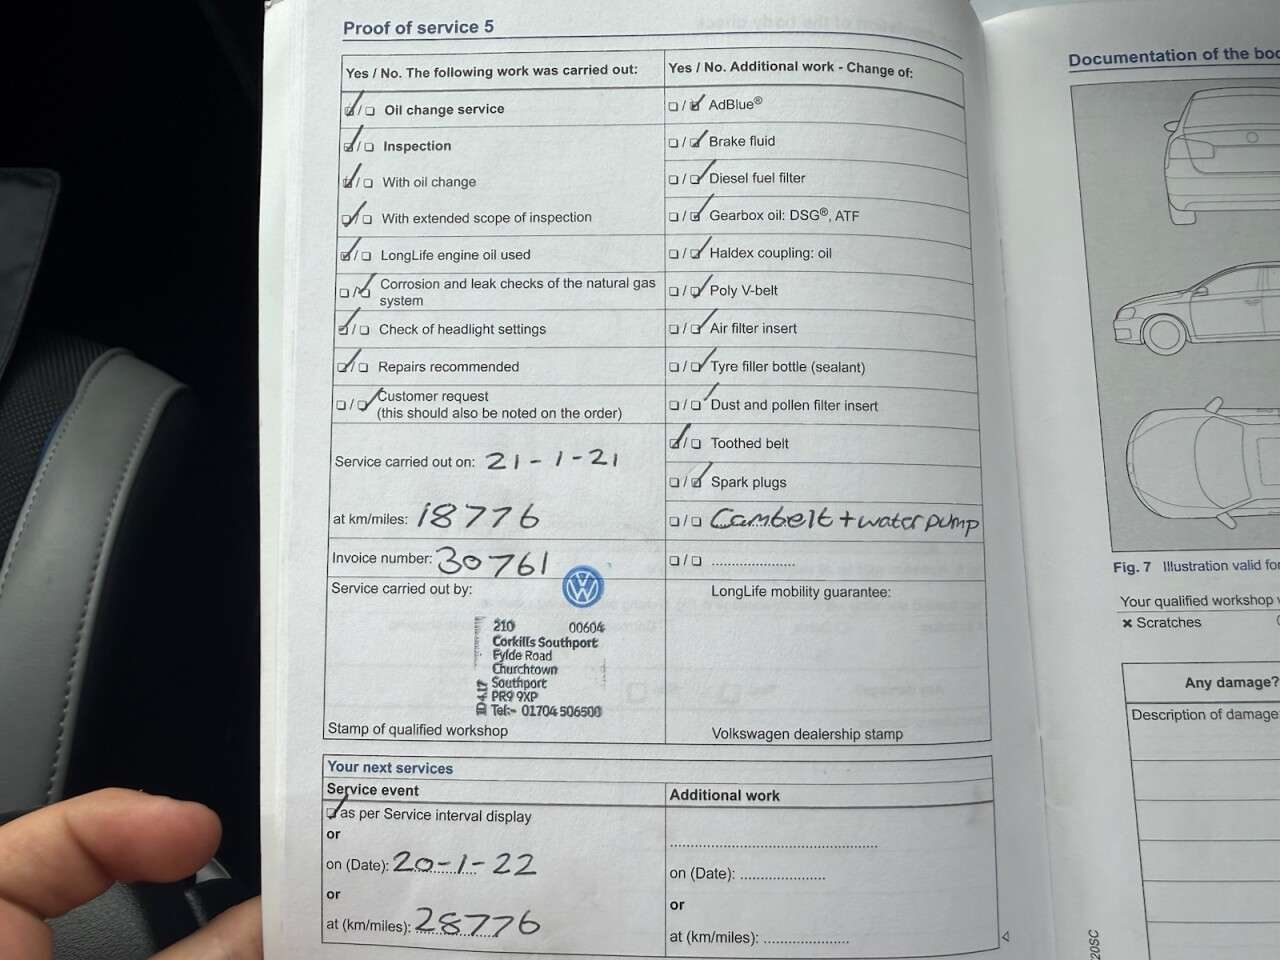 Proof of service 5
Yes / No. The following work was carried out:
Oil change service
Inspection
With oil change
With extended scope of inspection
LongLife engine oil used
Corrosion and leak checks of the natural gas
system
Check of headlight settings
Repairs recommended
Customer request
(this should also be noted on the order)
Service carried out on: 21-1-21
at km/miles: 18776
Invoice number: 30761
Service carried out by:
210 00604
Corkills Southport
Fylde Road
Churchtown
Southport
PR9 9XP
Tel:- 01704 506500
Stamp of qualified workshop
Yes / No. Additional work - Change of:
AdBlue®
Brake fluid
Diesel fuel filter
Gearbox oil: DSG®, ATF
Haldex coupling: oil
Poly V-belt
Air filter insert
Tyre filler bottle (sealant)
Dust and pollen filter insert
Toothed belt
Spark plugs
Cambelt + water pump
LongLife mobility guarantee:
Volkswagen dealership stamp
Your next services
Service event
as per Service interval display
or
on (Date): 20-1-22
or
at (km/miles): 28776
Additional work
on (Date):
or
at (km/miles):
Documentation of the
Fig. 7 Illustration valid for
Your qualified workshop
× Scratches
Any damage?
Description of damage
20SC